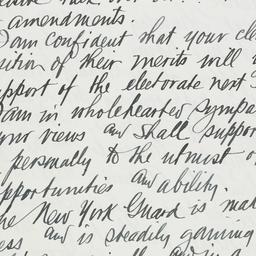 amendments.
I am confident that your cle
sition of their merits will
upport of the electorate next
I am in wholehearted sympa
your views and shall suppor
personally to the utmost o
opportunities and ability.
he New York Guard is mak
ess and is steadily gaining